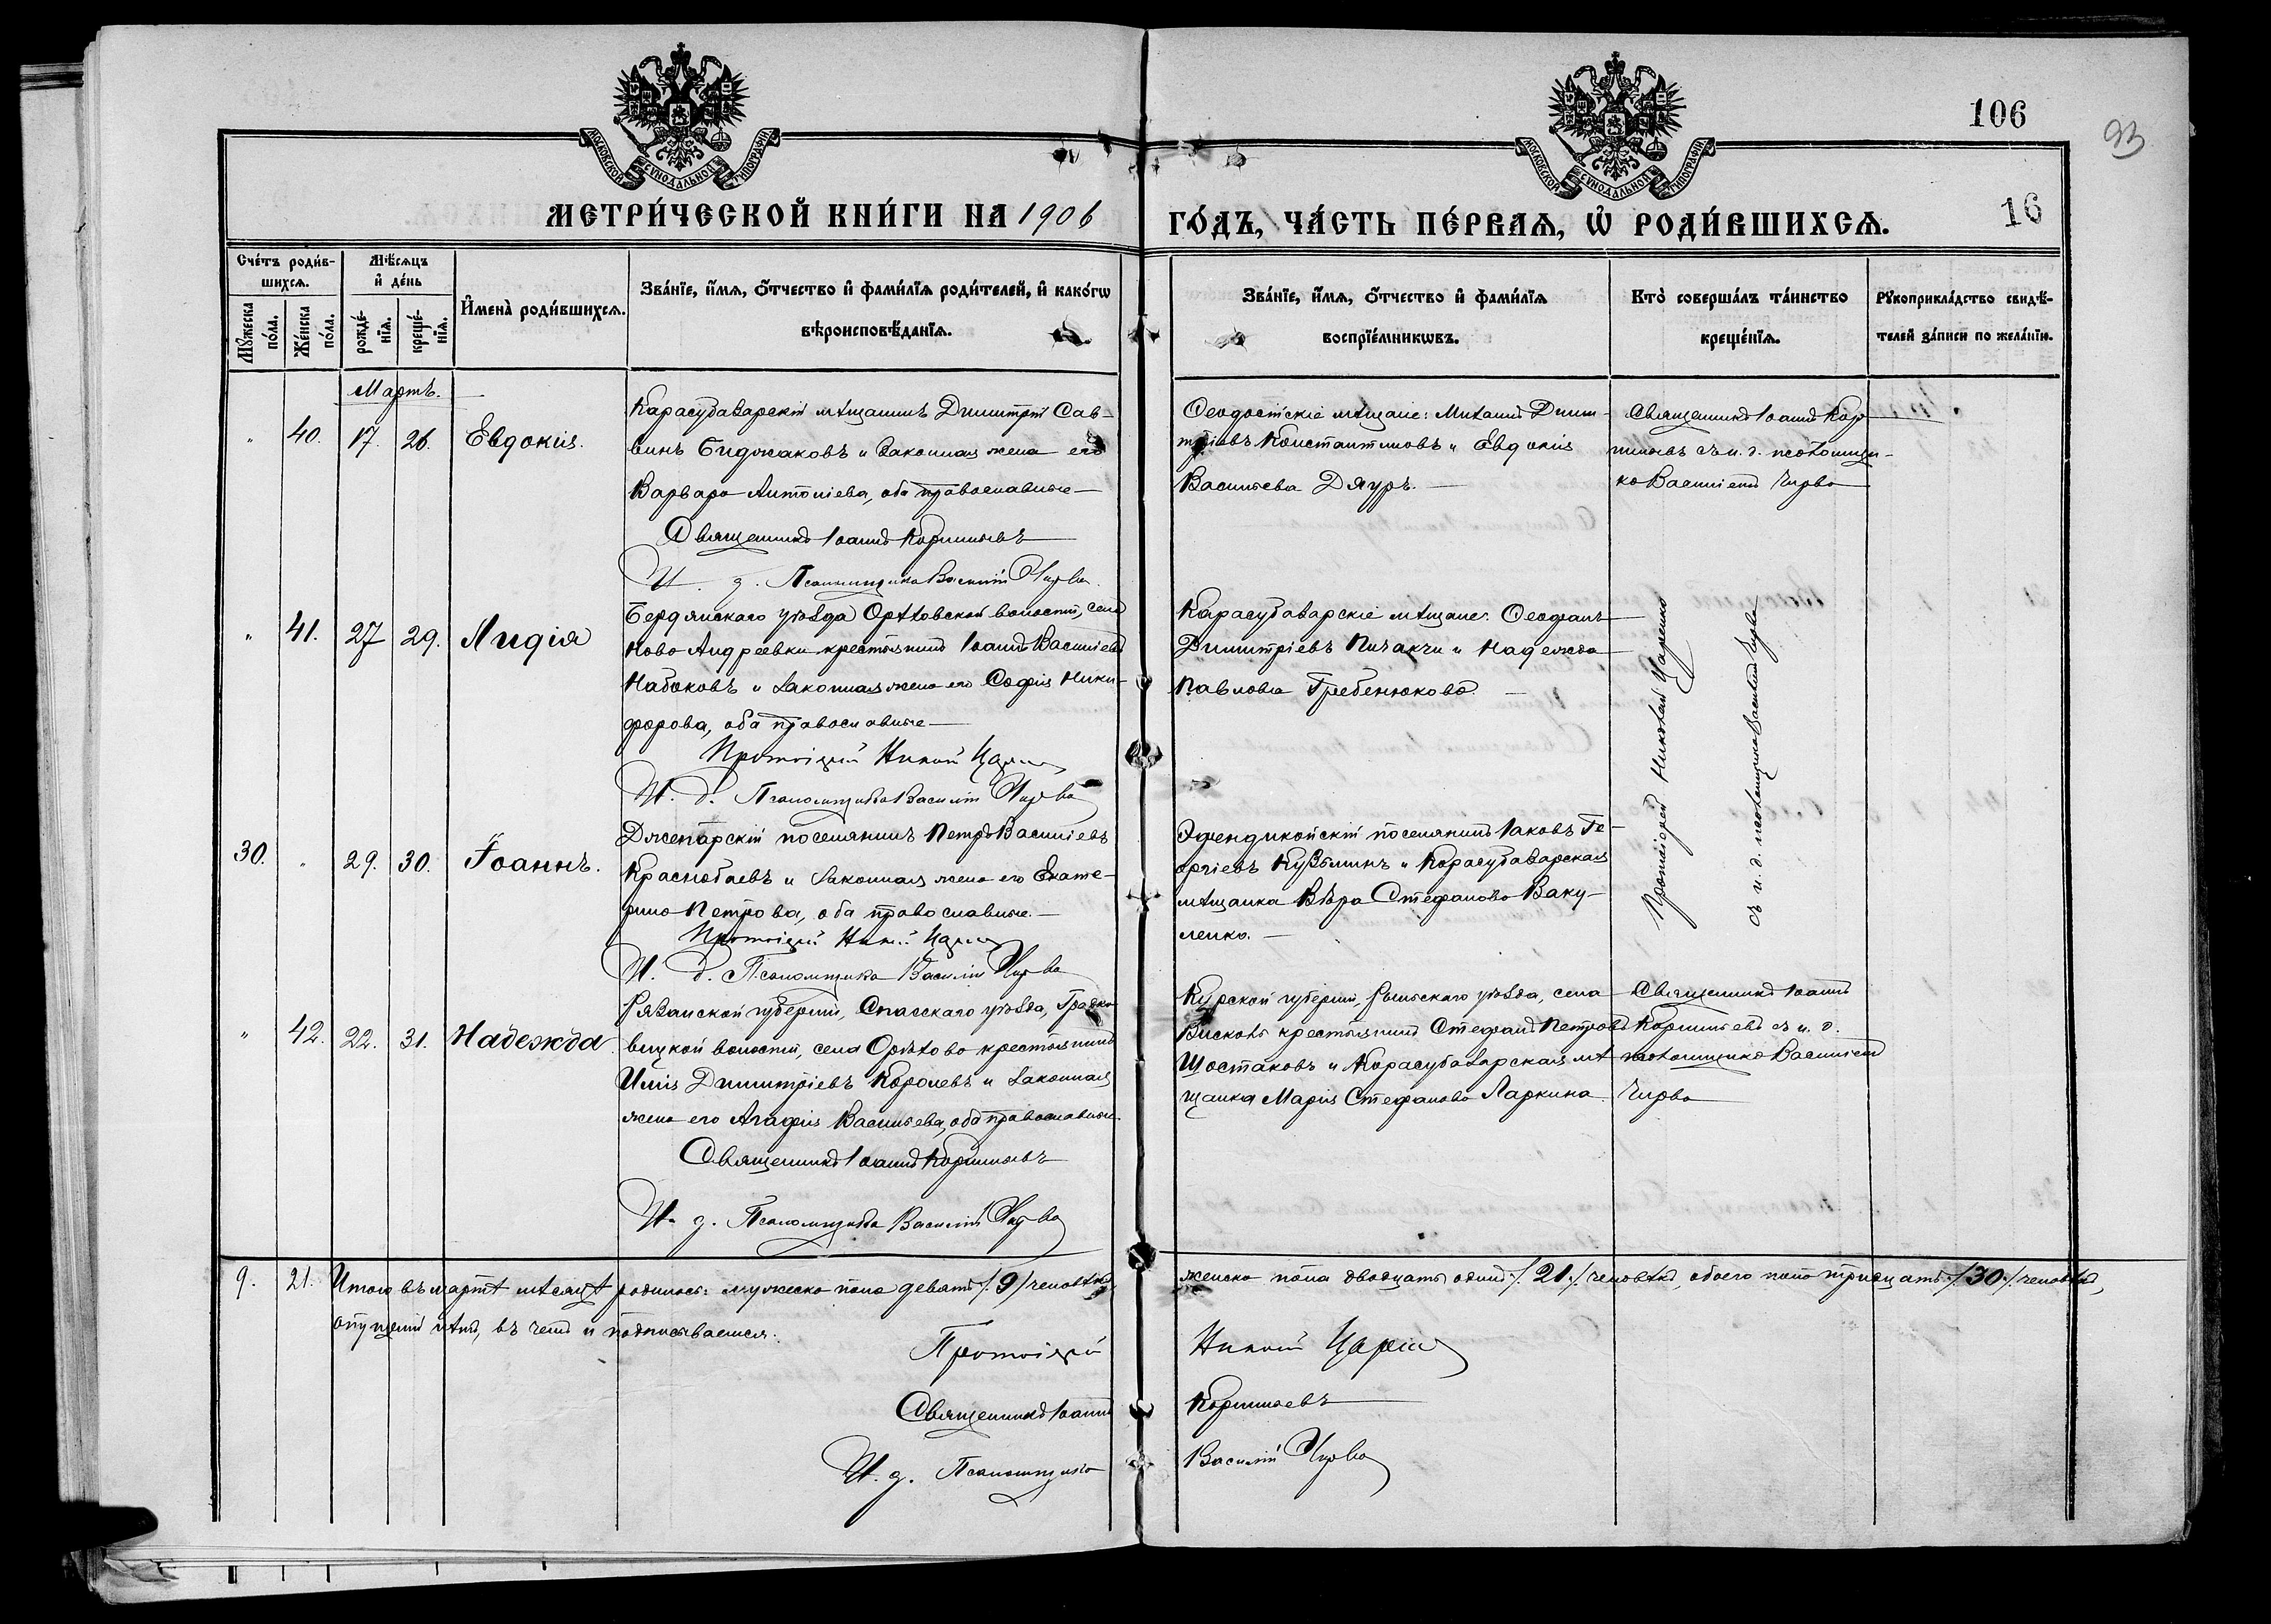 106
93
МОСКОВСКОЙ СУНОДАЛЬНОЙ ТИПОГРАФІИ
МОСКОВСКОЙ СУНОДАЛЬНОЙ ТИПОГРАФІИ
МЕТРИ́ЧЕСКОЙ КНИ́ГИ НА 1906
ГО́ДЪ, ЧА́СТЬ ПЕ́РВАѦ, Ѡ҆ РОДИ́ВШИХСѦ.
16
Сче́тъ роди́в-
шихсѧ.
Мꙋ́жеска по́ла.
Же́нска по́ла.
Мѣ́сѧцъ
и҆ де́нь
рожде́-
нїѧ.
креще́-
нїѧ.
И҆мена̀ роди́вшихсѧ.
Зва́нїе, и҆́мѧ, ѻ҆́тчество и҆ фами́лїѧ роди́телей, и҆ како́гѡ
вѣроисповѣ́данїѧ.
Зва́нїе, и҆́мѧ, ѻ҆́тчество и҆ фами́лїѧ
воспрїе́мникѡвъ.
Кто̀ соверша́лъ та́инство
креще́нїѧ.
Рꙋкоприкла́дство свидѣ́-
телей за́писи по жела́нїю.
Мартъ.
" 40. 17. 26. Евдокія.
Карасубазарскій мѣщанинъ Димитрій Сав-
винъ Биджаковъ и законная жена его
Варвара Антоніева, оба православные
Священникъ Іоаннъ
И. д. Псаломщика Василій Чирва
Ѳеодосійскіе мѣщане: Михаилъ Дими-
тріевъ Константиновъ и Евдокія
Васильева Дяуръ.
Священникъ Іоаннъ
съ и. д. псаломщи-
ка Василіемъ Чирва
" 41. 27 29. Лидія
Бердянскаго уѣзда Орѣховской волости, села
Ново Андреевки крестьянинъ Іоаннъ Василіевъ
Набоковъ и законная жена его Софія Ники-
форова, оба православные
Протоіерей Николай Царенко
И. д. Псаломщика Василій Чирва
Карасубазарскіе мѣщане: Ѳеофанъ
Димитріевъ Пичакчи и Надежда
Павлова Гребенюкова.
Протоіерей Николай Царенко
съ и. д. псаломщика Василіемъ Чирва
30. " 29. 30. Іоаннъ.
Джепарскій поселянинъ Петръ Василіевъ
Краснобаевъ и законная жена его Екате-
рина Петрова, оба православные.
Протоіерей Николай Царенко
И. д. Псаломщика Василій Чирва
Эфендикойскій поселянинъ Іаковъ Ге-
оргіевъ Кузьминъ и Карасубазарская
мѣщанка Вѣра Стефанова Ваку-
ленко.
" 42. 22. 31. Надежда.
Рязанской губерніи, Спасскаго уѣзда,
волости, села Орѣхово крестьянинъ
Илія Димитріевъ Королевъ и законная
жена его Агафія Васильева, оба православные.
Священникъ Іоаннъ
И. д. Псаломщика Василій Чирва
Курской губерніи, Рыльскаго уѣзда, села
крестьянинъ Стефанъ Петровъ
Шостаковъ и Карасубазарская мѣ-
щанка Марія Стефанова Ларкина.
Священникъ Іоаннъ
съ и. д.
псаломщика Василіемъ
Чирва
9. 21. Итого въ мартѣ мѣсяцѣ родилось: мужеска пола девять /.9./ человѣкъ,
женска пола двадцать одинъ /.21./ человѣкъ, обоего пола тридцать /.30./ человѣкъ,
опущеній нѣтъ, въ чемъ и подписываемся:
Протоіерей Николай Царенко
Священникъ Іоаннъ
И. д. Псаломщика Василій Чирва